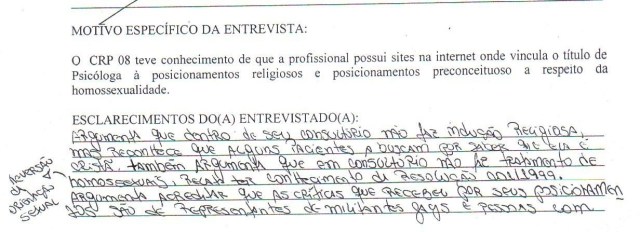 MOTIVO ESPECÍFICO DA ENTREVISTA:
O CRP 08 teve conhecimento de que a profissional possui sites na internet onde vincula o título de
Psicóloga à posicionamentos religiosos e posicionamentos preconceituoso a respeito da
homossexualidade.
ESCLARECIMENTOS DO(A) ENTREVISTADO(A):
Argumenta que dentro de seu consultório não faz indução religiosa,
mas reconhece que alguns pacientes a buscam por saber que ela é
cristã. também argumenta que em consultório não fz tratamento de
homossexuais, relata ter conhecimento da Resolução 001/1999.
Argumenta acreditar que as críticas que recebeu por seus posicionamen
tos são de representantes de militantes gays e pessoas com
de reversão
da
orientação
sexual